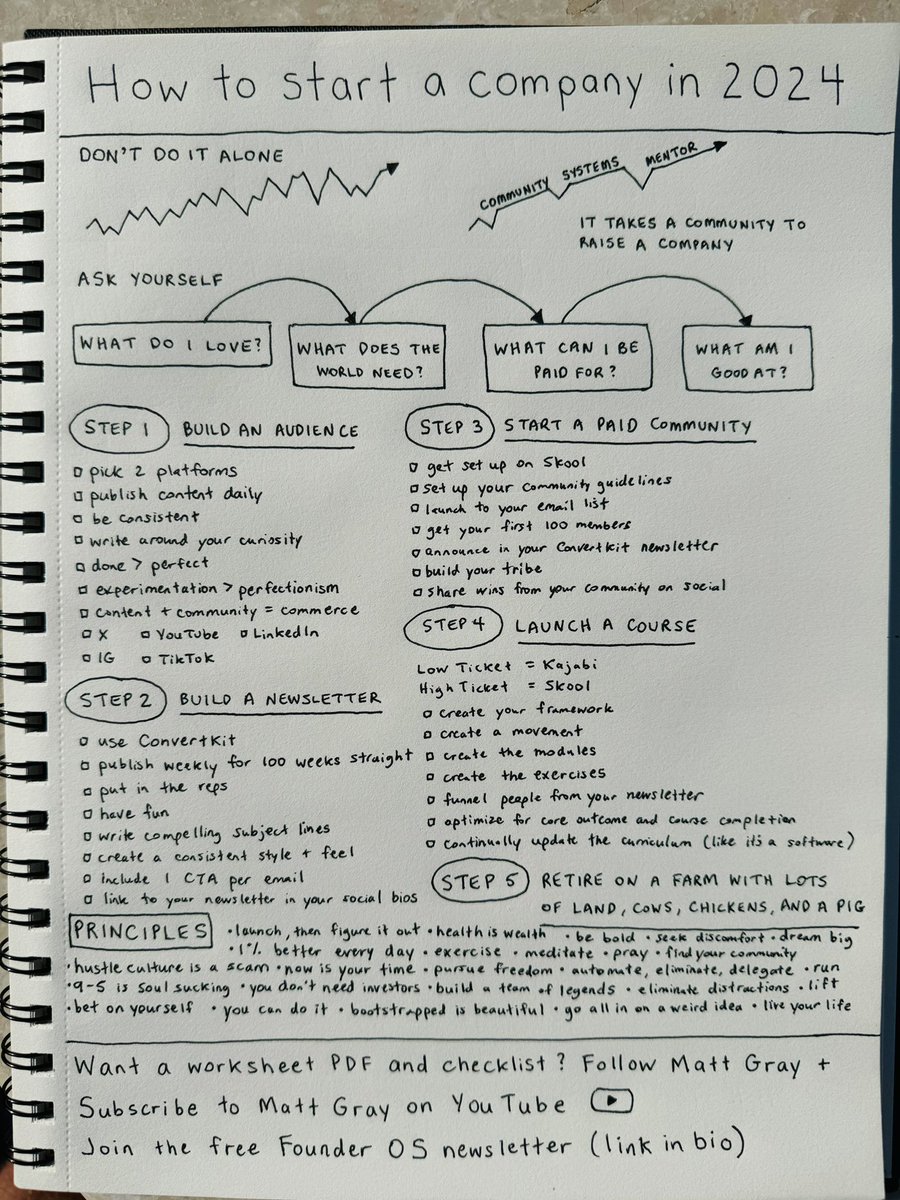 How to start a company in 2024
DON'T DO IT ALONE
COMMUNITY SYSTEMS MENTOR
IT TAKES A COMMUNITY TO
RAISE A COMPANY
ASK YOURSELF
WHAT DO I LOVE?
WHAT DOES THE
WORLD NEED?
WHAT CAN I BE
PAID FOR?
WHAT AM I
GOOD AT?
STEP 1 BUILD AN AUDIENCE
pick 2 platforms
publish content daily
be consistent
write around your curiosity
done > perfect
experimentation > perfectionism
content + community = commerce
X YouTube LinkedIn
IG TikTok
STEP 2 BUILD A NEWSLETTER
use ConvertKit
publish weekly for 100 weeks straight
put in the reps
have fun
write compelling subject lines
create a consistent style + feel
include 1 CTA per email
link to your newsletter in your social bios
STEP 3 START A PAID COMMUNITY
get set up on Skool
set up your community guidelines
launch to your email list
get your first 100 members
announce in your ConvertKit newsletter
build your tribe
share wins from your community on social
STEP 4 LAUNCH A COURSE
Low Ticket = Kajabi
High Ticket = Skool
create your framework
create a movement
create the modules
create the exercises
funnel people from your newsletter
optimize for core outcome and course completion
continually update the curriculum (like it's a software)
STEP 5 RETIRE ON A FARM WITH LOTS
OF LAND, COWS, CHICKENS, AND A PIG
PRINCIPLES • launch, then figure it out • health is wealth • be bold • seek discomfort • dream big
• 1% better every day • exercise • meditate • pray • find your community
• hustle culture is a scam • now is your time • pursue freedom • automate, eliminate, delegate • run
• 9-5 is soul sucking • you don't need investors • build a team of legends • eliminate distractions • lift
• bet on yourself • you can do it • bootstrapped is beautiful • go all in on a weird idea • live your life
Want a worksheet PDF and checklist? Follow Matt Gray +
Subscribe to Matt Gray on YouTube
Join the free Founder OS newsletter (link in bio)